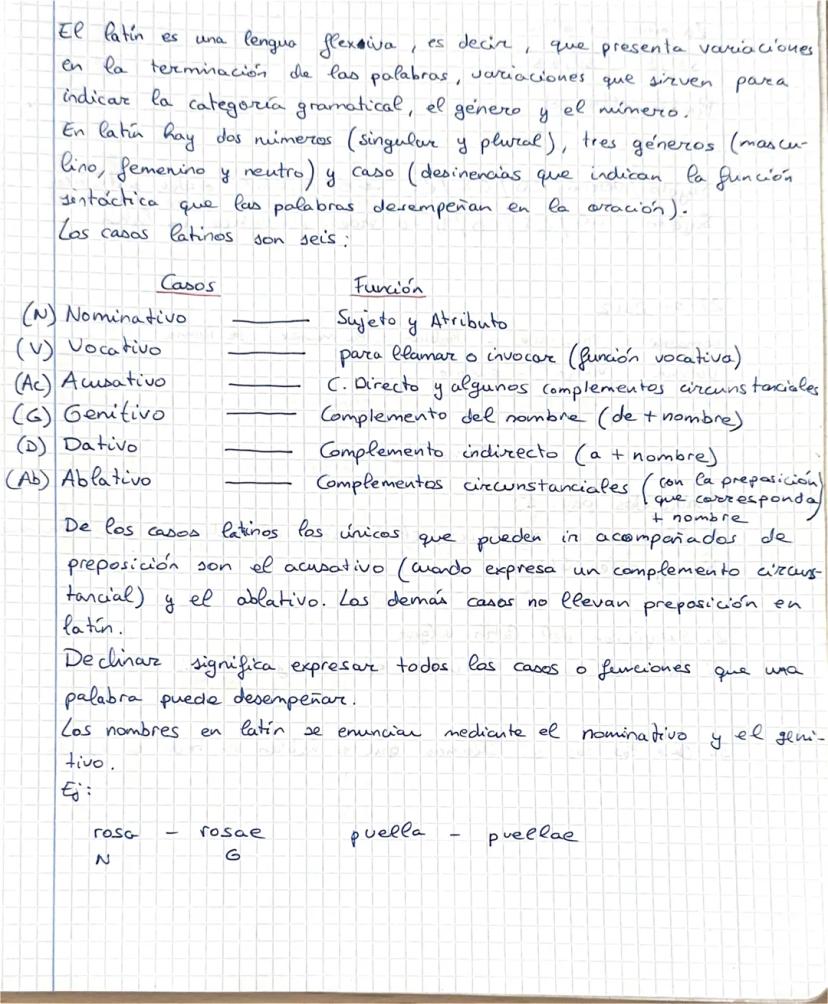 El latín es una lengua flexiva, es decir, que presenta variaciones
en la terminación de las palabras, variaciones que sirven para
indicar la categoría gramatical, el género y el número.
En latín hay dos números (singular y plural), tres géneros (mascu-
lino, femenino y neutro) y caso (desinencias que indican la función
sintáctica que las palabras desempeñan en la oración).
Los casos latinos son seis:
Casos Función
(N) Nominativo —— Sujeto y Atributo
(V) Vocativo —— para llamar o invocar (función vocativa)
(Ac) Acusativo —— C. Directo y algunos complementos circunstanciales
(G) Genitivo —— Complemento del nombre (de + nombre)
(D) Dativo —— Complemento indirecto (a + nombre)
(Ab) Ablativo —— Complementos circunstanciales (con la preposición
que corresponda)
+ nombre
De los casos latinos los únicos que pueden ir acompañados de
preposición son el acusativo (cuando expresa un complemento circuns-
tancial) y el ablativo. Los demás casos no llevan preposición en
latín.
Declinar significa expresar todos los casos o funciones que una
palabra puede desempeñar.
Los nombres en latín se enuncian mediante el nominativo y el geni-
tivo.
Ej:
rosa - rosae puella - puellae
N G